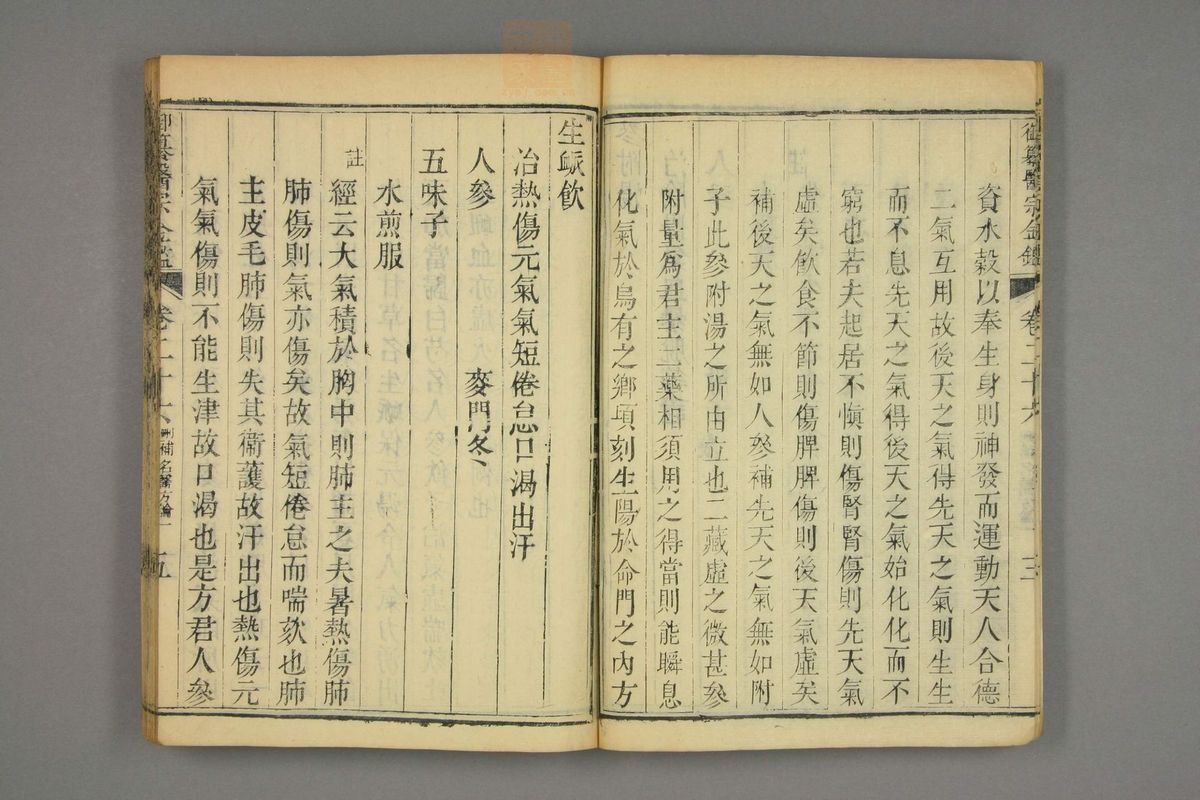 御纂醫宗金鑑 卷二十六 三
資水穀以奉生身則神發而運動天人合德
二氣互用故後天之氣得先天之氣則生生
而不息先天之氣得後天之氣始化化而不
窮也若夫起居不慎則傷腎腎傷則先天氣
虛矣飲食不節則傷脾脾傷則後天氣虛矣
補後天之氣無如人參補先天之氣無如附
子此參附湯之所由立也二藏虛之微甚參
附量爲君主二藥相須用之得當則能瞬息
化氣於烏有之鄉頃刻生陽於命門之內方
生脈飲
治熱傷元氣氣短倦怠口渴出汗
人參 麥門冬
五味子
水煎服
註 經云大氣積於胸中則肺主之夫暑熱傷肺
肺傷則氣亦傷矣故氣短倦怠而喘欬也肺
主皮毛肺傷則失其衞護故汗出也熱傷元
氣氣傷則不能生津故口渴也是方君人參
御纂醫宗金鑑 卷二十六 刪補名醫方論一 五